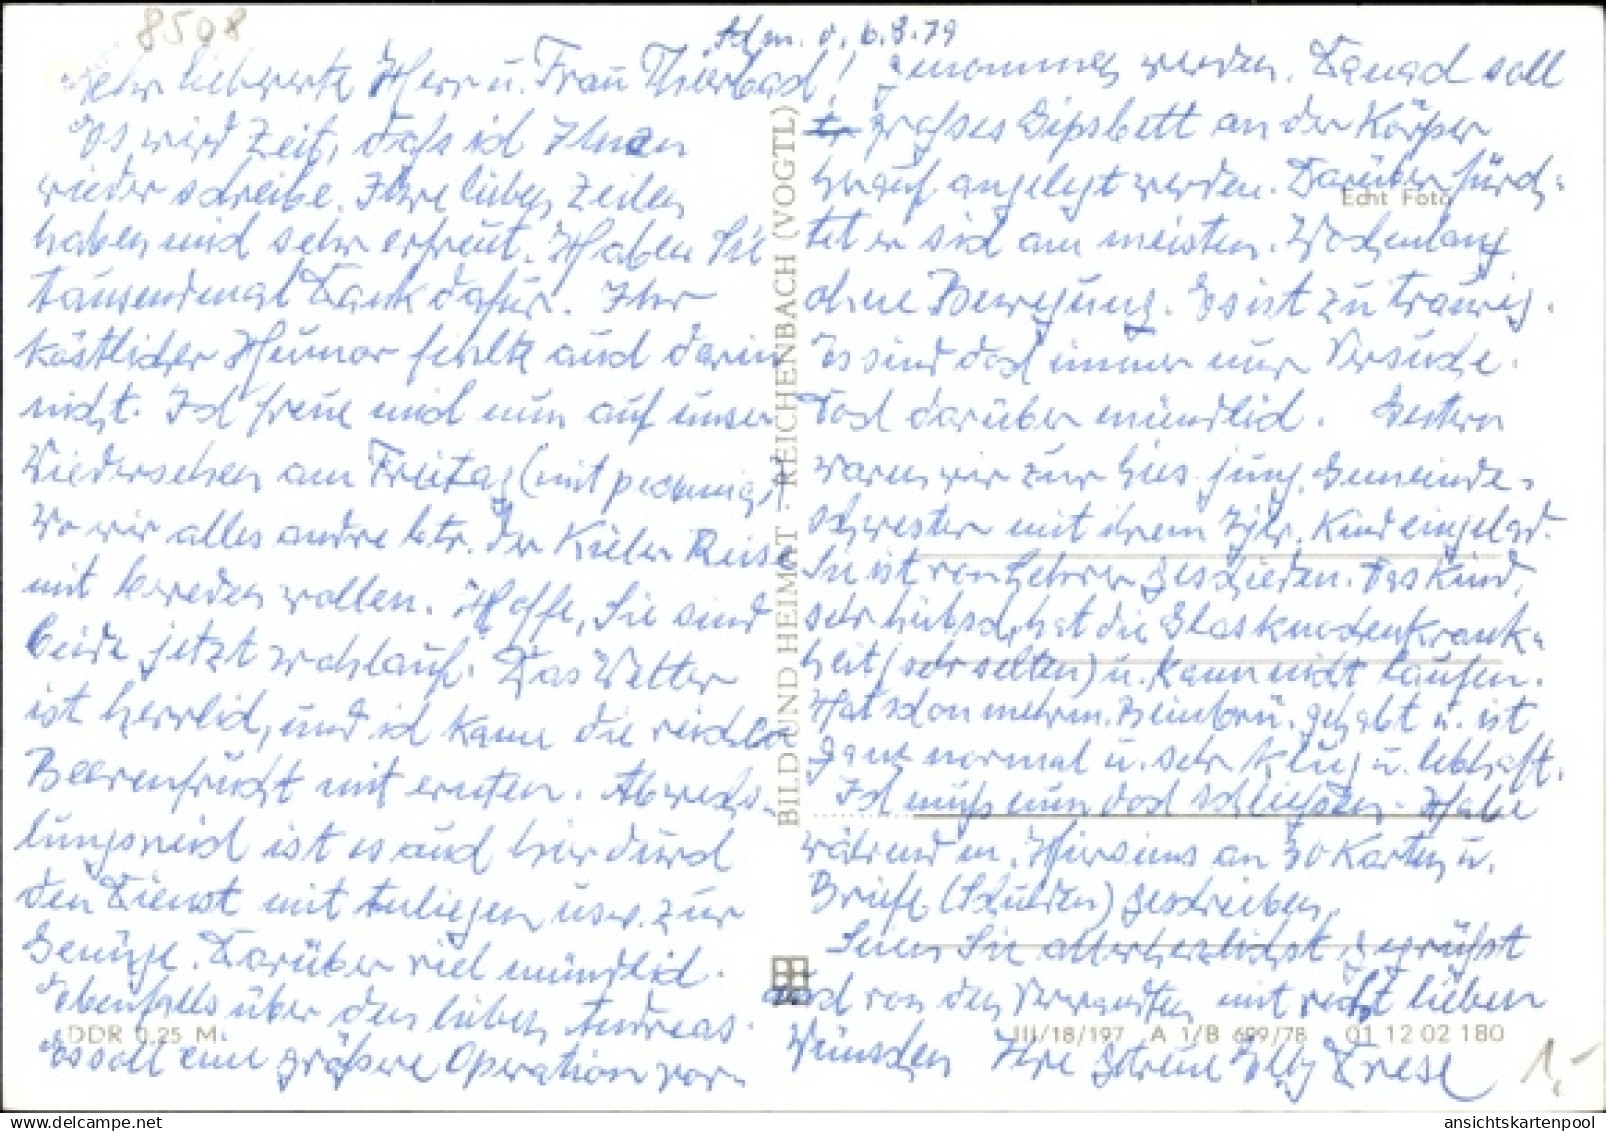 8508
Adm. d. 6.8.79
Sehr liebwerte Herr u. Frau Thierbach!
Es wird Zeit, daß ich Ihnen
wieder schreibe. Ihre lieben Zeilen
haben mich sehr erfreut. Haben Sie
tausendmal Dank dafür. Ihr
köstlicher Humor fehlte auch darin
nicht. Ich freue mich nun auf unser
Wiedersehen am Freitag (mit )
Wo wir alles andre betr. der Kieler Reise
mit bereden wollen. Hoffe, Sie sind
beide jetzt wohlauf. Das Wetter
ist herrlich, und ich kann die reichen
Beerenfrücht mit ernten. Abwechs-
lungsreich ist es auch hier durch
den Dienst mit Anliegen usw. zur
Genüge. Darüber viel mündlich.
Ebenfalls über den lieben Andreas.
Es soll eine größere Operation vor-
genommen werden. Danach soll
großes Gipsbett an der Körper
herauf angelegt werden. Darüber fürch-
tet er sich am meisten. Wochenlang
ohne Bewegung. Es ist zu traurig.
Es sind doch immer nur Versuche.
Doch darüber mündlich. Gestern
waren wir zur hies. jung. Gemeinde-
schwester mit ihrem jhr. Kind eingelad.
Sie ist von Lehrer geschieden. Das Kind,
sehr hübsch, hat die Glasknochenkrank-
heit (sehr selten) u. kann nicht laufen.
Hat schon mehrm. Beinbrü. gehabt u. ist
ganz normal u. sehr klug u. lebhaft.
Ich muß nun doch schließen. Habe
während m. Hierseins an 30 Karten u.
Briefe (Schulden) geschrieben.
Seien Sie allerherzlichst gegrüßt
auch von den Verwandten mit recht lieben
Wünschen Ihre getreue Elly Drese
Echt Foto
BILD UND HEIMAT · REICHENBACH (VOGTL)
DDR 0,25 M
III/18/197 A 1/B 699/78 01 12 02 180
1,-
ansichtskartenpool